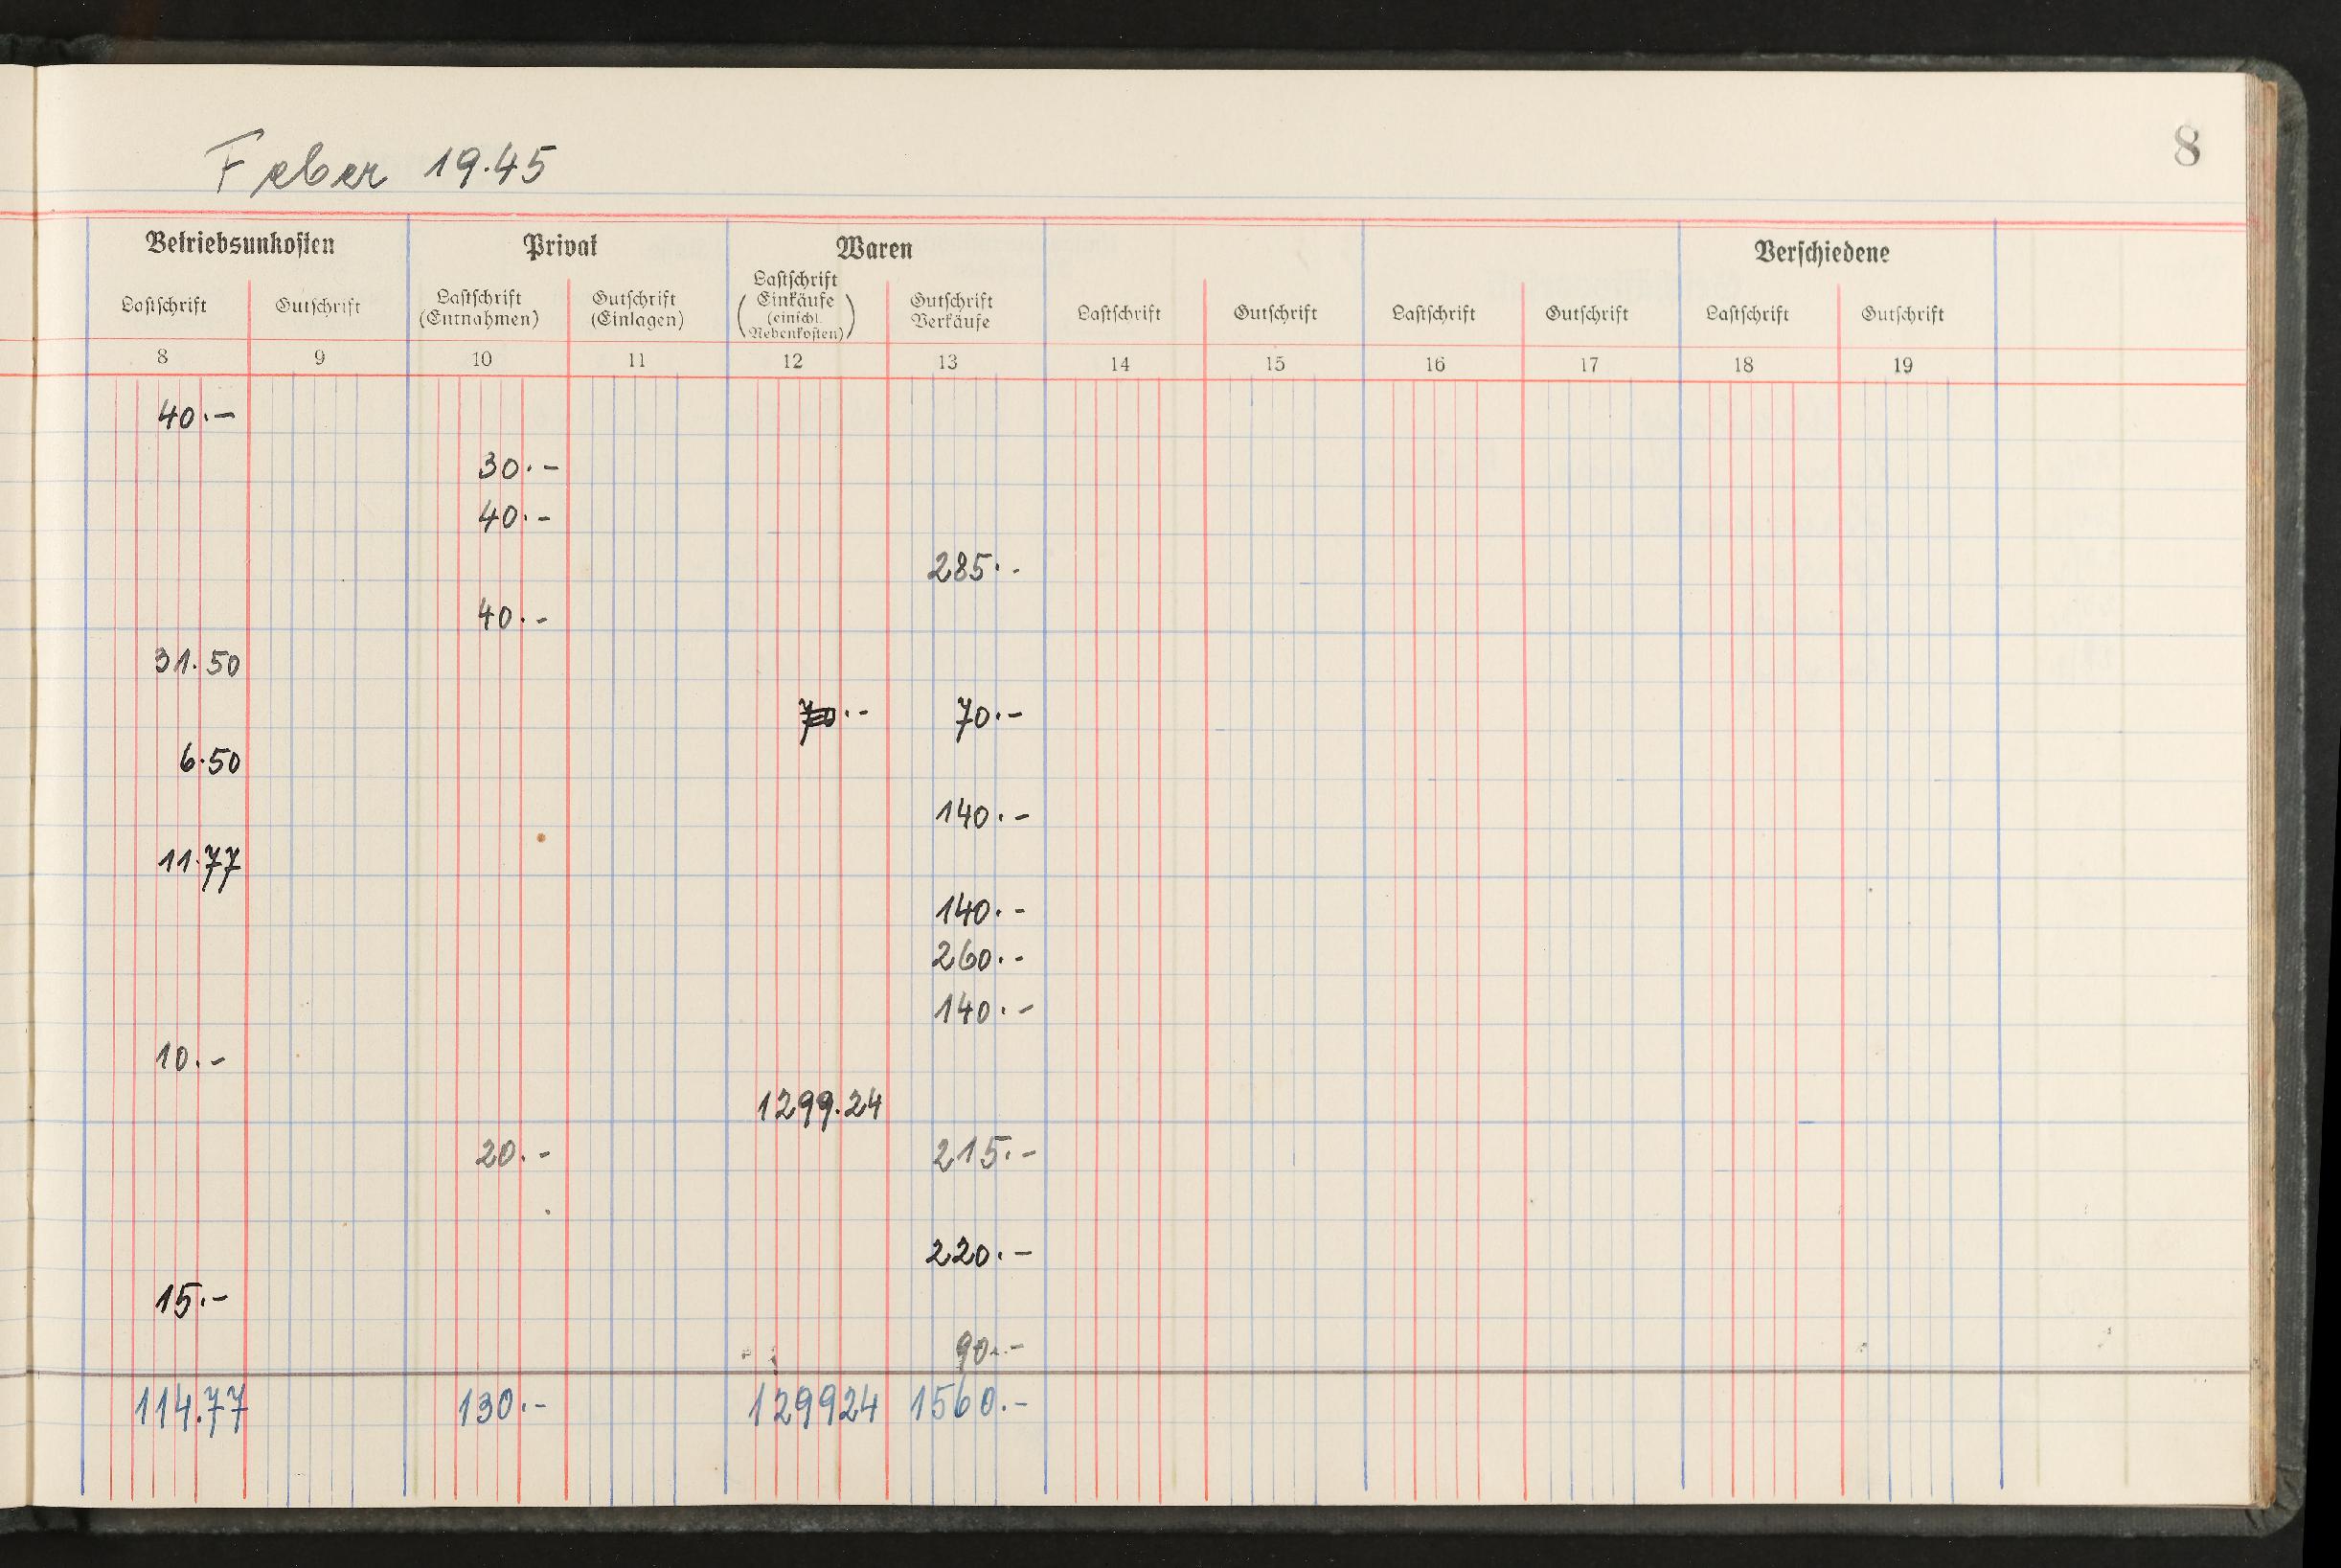 Feber 19.45
8
Betriebsunkosten Privat Waren Verschiedene
Lastschrift Gutschrift Lastschrift (Entnahmen) Gutschrift (Einlagen) Lastschrift Einkäufe (einschl. Nebenkosten) Gutschrift Verkäufe Lastschrift Gutschrift Lastschrift Gutschrift Lastschrift Gutschrift
8 9 10 11 12 13 14 15 16 17 18 19
40.-
30.-
40.-
285.-
40.-
31.50
70.- 70.-
6.50
140.-
11.77
140.-
260.-
140.-
10.-
1299.24
20.- 215.-
220.-
15.-
90.-
114.77 130.- 129924 1560.-